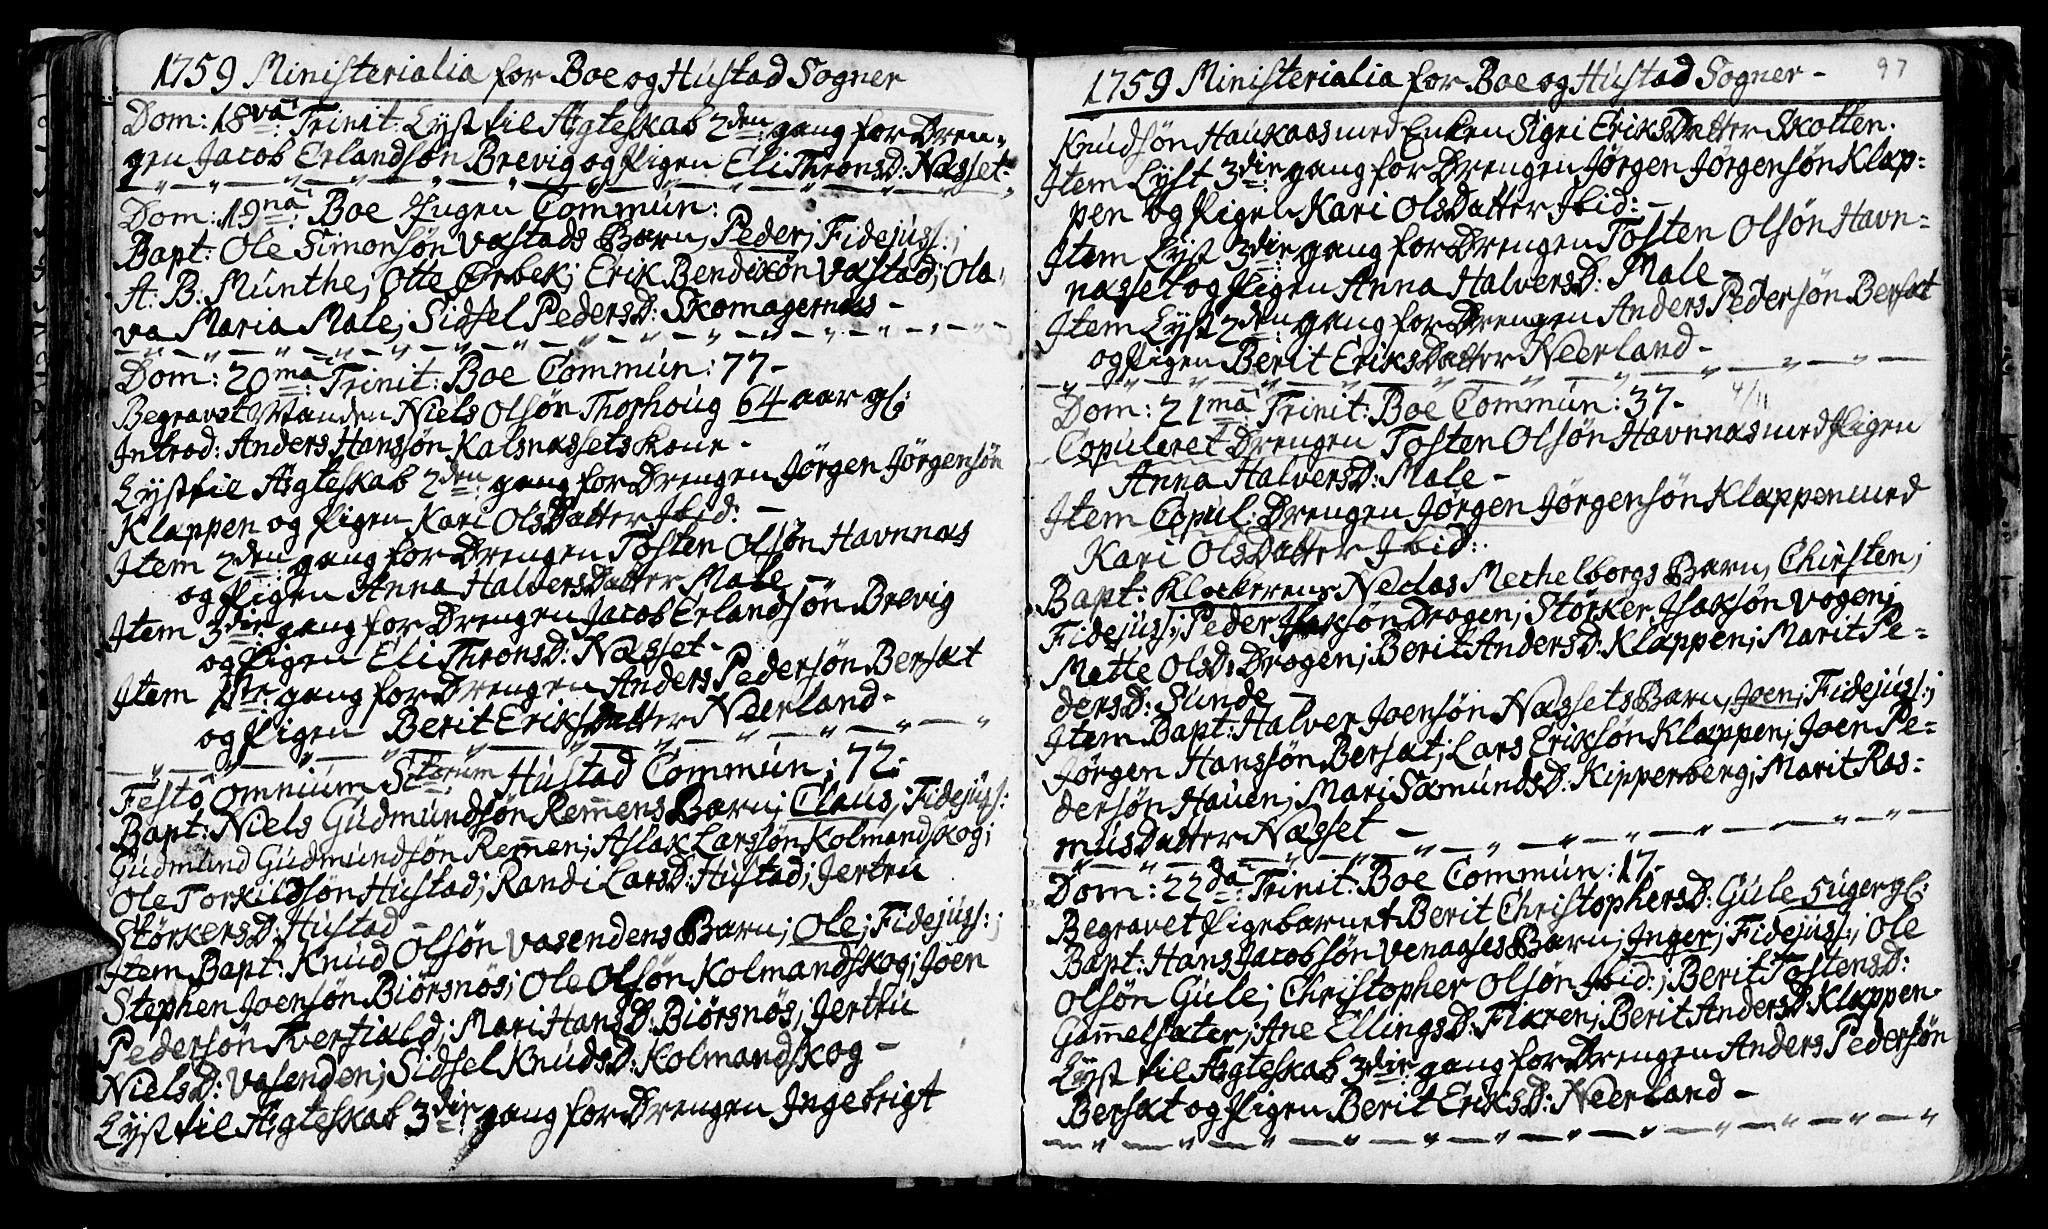 1759 Ministerialia for Boe og Hustad Sogner
Dom: 18va: Trinit: Lyst til Ægteskab 2den gang for Dren-
gen Jacob Erlandsøn Brevig og Pigen Eli Thronsd: Næsset-
Dom: 19na: Boe Ingen Commun:
Bapt: Ole Simonsøn Vastads Barn; Peder; Fidejuss:;
A: B: Munthe; Otte Ørbek; Erik Bendixøn Vastad; Ola-
va Maria Male; Sidsel Pedersd: Skomagernæs -
Dom: 20ma: Trinit: Boe Commun: 77-
Begravet Manden Niels Olsøn Thorhoug 64 aar gl:
Introd: Anders Hansøn Kalsnæssets Kone -
Lyst til Ægteskab 2den gang for Drengen Jørgen Jørgensøn
Klappen og Pigen Kari OlsDatter Ibid: -
Item 2den gang for Drengen Tosten Olsøn Havnnæs
og Pigen Anna HalversDatter Male -
Item 3die gang for Drengen Jacob Erlandsøn Brevig
og Pigen Eli Thronsd: Næsset -
Item 1ste gang for Drengen Anders Pedersøn Bersæt
og Pigen Berit EriksDatter Neerland -
Festo omnium Storum Hustad Commun: 72:
Bapt: Niels Gudmundsøn Remmens Barn; Claus; Fidejuss:
Gudmund Gudmundsøn Remmen; Aslak Larssøn Kolmandskog;
Ole Torkildsøn Hustad; Randi Larsd: Hustad; Jertru
Størkersd: Hustad -
Item Bapt: Knud Olsøn Vasendens Barn; Ole; Fidejuss:;
Stephen Joensøn Biørsnøs; Ole Olsøn Kolmandskog; Joen
Pedersøn Tverfiæld; Mari Hansd: Biørsnøs; Jertru
Nielsd: Vasenden; Sidsel Knudsd: Kolmandskog -
Lyst til Ægteskab 3die gang for Drengen Ingebrigt
1759 Ministerialia for Boe og Hustad Sogner -
97
Knudsøn Haukaas med Enken Sigri EriksDatter Skotten.
Item Lyst 3die gang for Drengen Jørgen Jørgensøn Klap-
pen og Pigen Kari OlsDatter Ibid: -
Item Lyst 3die gang for Drengen Tosten Olsøn Havn-
næsset og Pigen Anna Halversd: Male -
Item Lyst 2den gang for Drengen Anders Pedersøn Bersæt
og Pigen Berit EriksDatter Neerland -
Dom: 21ma Trinit: Boe Commun: 37-
4/11
Copuleret Drengen Tosten Olsøn Havnnæs med Pigen
Anna Halversd: Male -
Item Copul: Drengen Jørgen Jørgensøn Klappen med
Kari OlsDatter Ibid:
Bapt: Klockerens Niclas Mechelborgs Barn; Chirsten;
Fidejuss:; Peder Isaksøn Drogen; Størker Isaksøn Vogen;
Mette Olsd: Drogen; Berit Andersd: Klappen; Marit Pe-
dersd: Sunde -
Item Bapt: Halver Joensøn Næssets Barn; Joen; Fidejuss:;
Jørgen Hanssøn Bersæt; Lars Eriksøn Klappen; Joen Pe-
dersøn Hauen; Mari Sæmundsd: Kipperberg; Marit Ras-
musDatter Næsset -
Dom: 22da Trinit: Boe Commun: 17-
Begravet Pigebarnet Berit Christophersd: Gule 5 uger gl:
Bapt: Hans Jacobsøn Venaases Barn; Inger; Fidejuss:; Ole
Olsøn Gule; Christopher Olsøn Ibid:; Berit Tostensd:
Gammelsæter; Ane Ellingsd: Fiæren; Berit Andersd: Klappen.
Lyst til Ægteskab 3die gang for Drengen Anders Pedersøn
Bersæt og Pigen Berit Eriksd: Neerland -